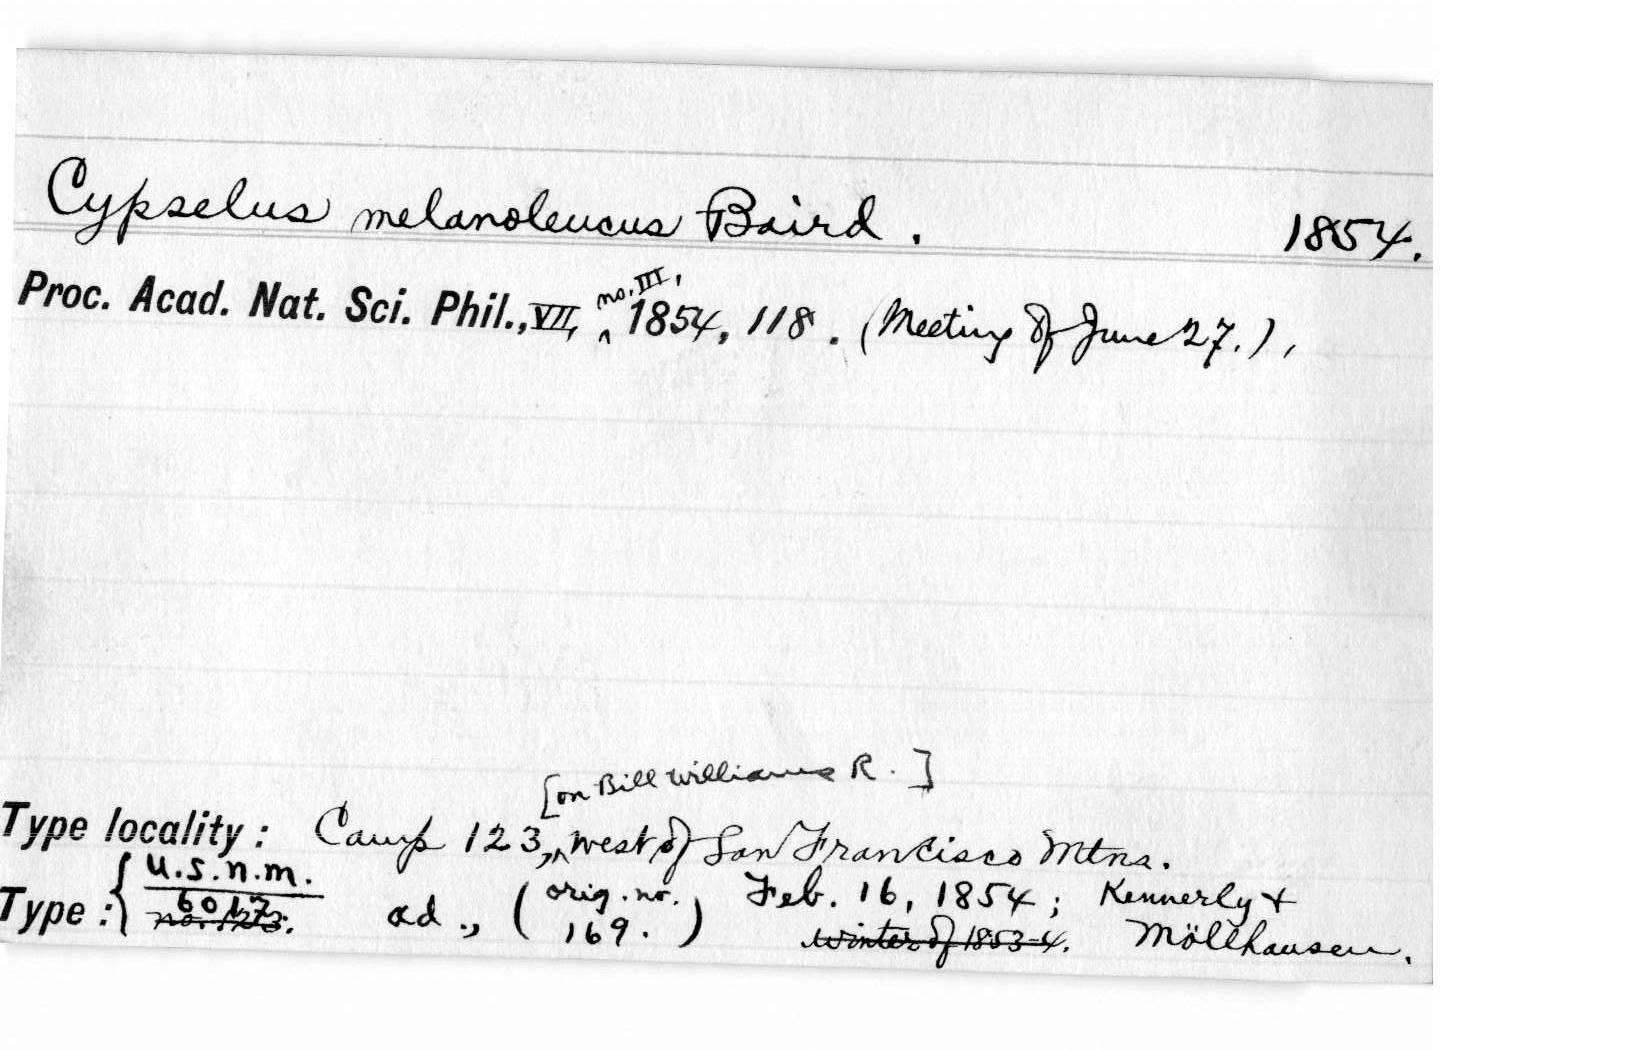 Cypselus melanoleucus Baird. 1854.
Proc. Acad. Nat. Sci. Phil., VII, no. III, 1854, 118. (Meeting of June 27.),
[on Bill Williams R.]
Type locality: Camp 123, west of San Francisco Mtns.
U.S.N.M.
Type: 6017. ad., (orig. no. 169.) Feb. 16, 1854; Kennerly &
no. 123. winter of 1853-4. Möllhausen.